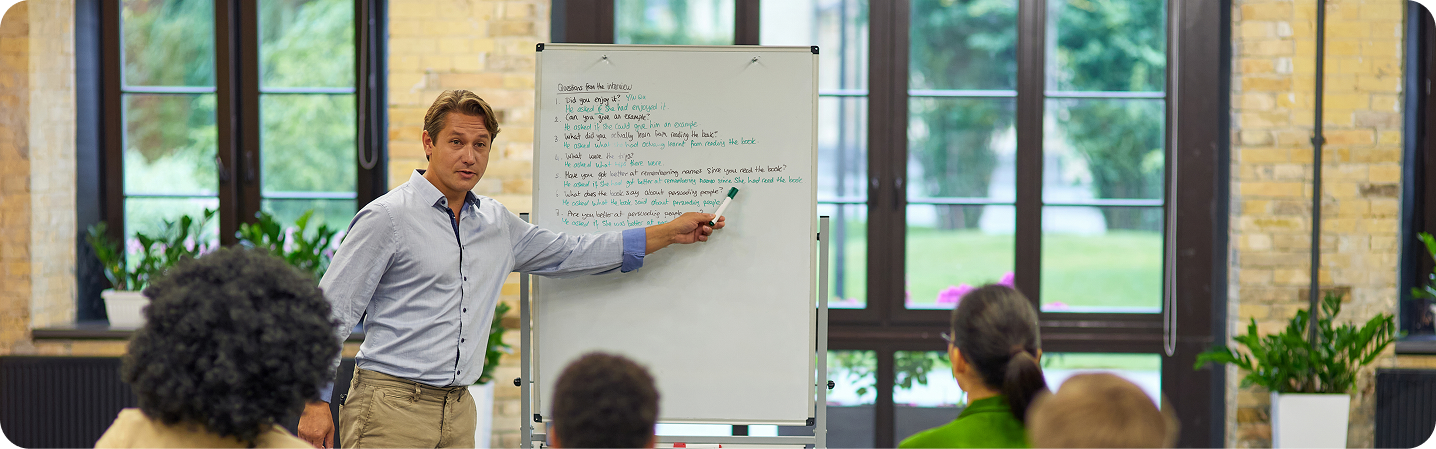 Questions from the interview
1. Did you enjoy it?
He asked if she had enjoyed it.
2. Can you give an example?
He asked if she could give him an example.
3. What did you actually learn from reading the book?
He asked what had actually learnt from reading the book
4. What were the
He asked what there were
5. Have you got better at remembering names since you read the book?
He asked if she had got better at remembering names since she had read the book
6. What does the book say about persuading people?
He asked what the book said about persuading people
7. Are you better at persuading people
He asked if she was better at